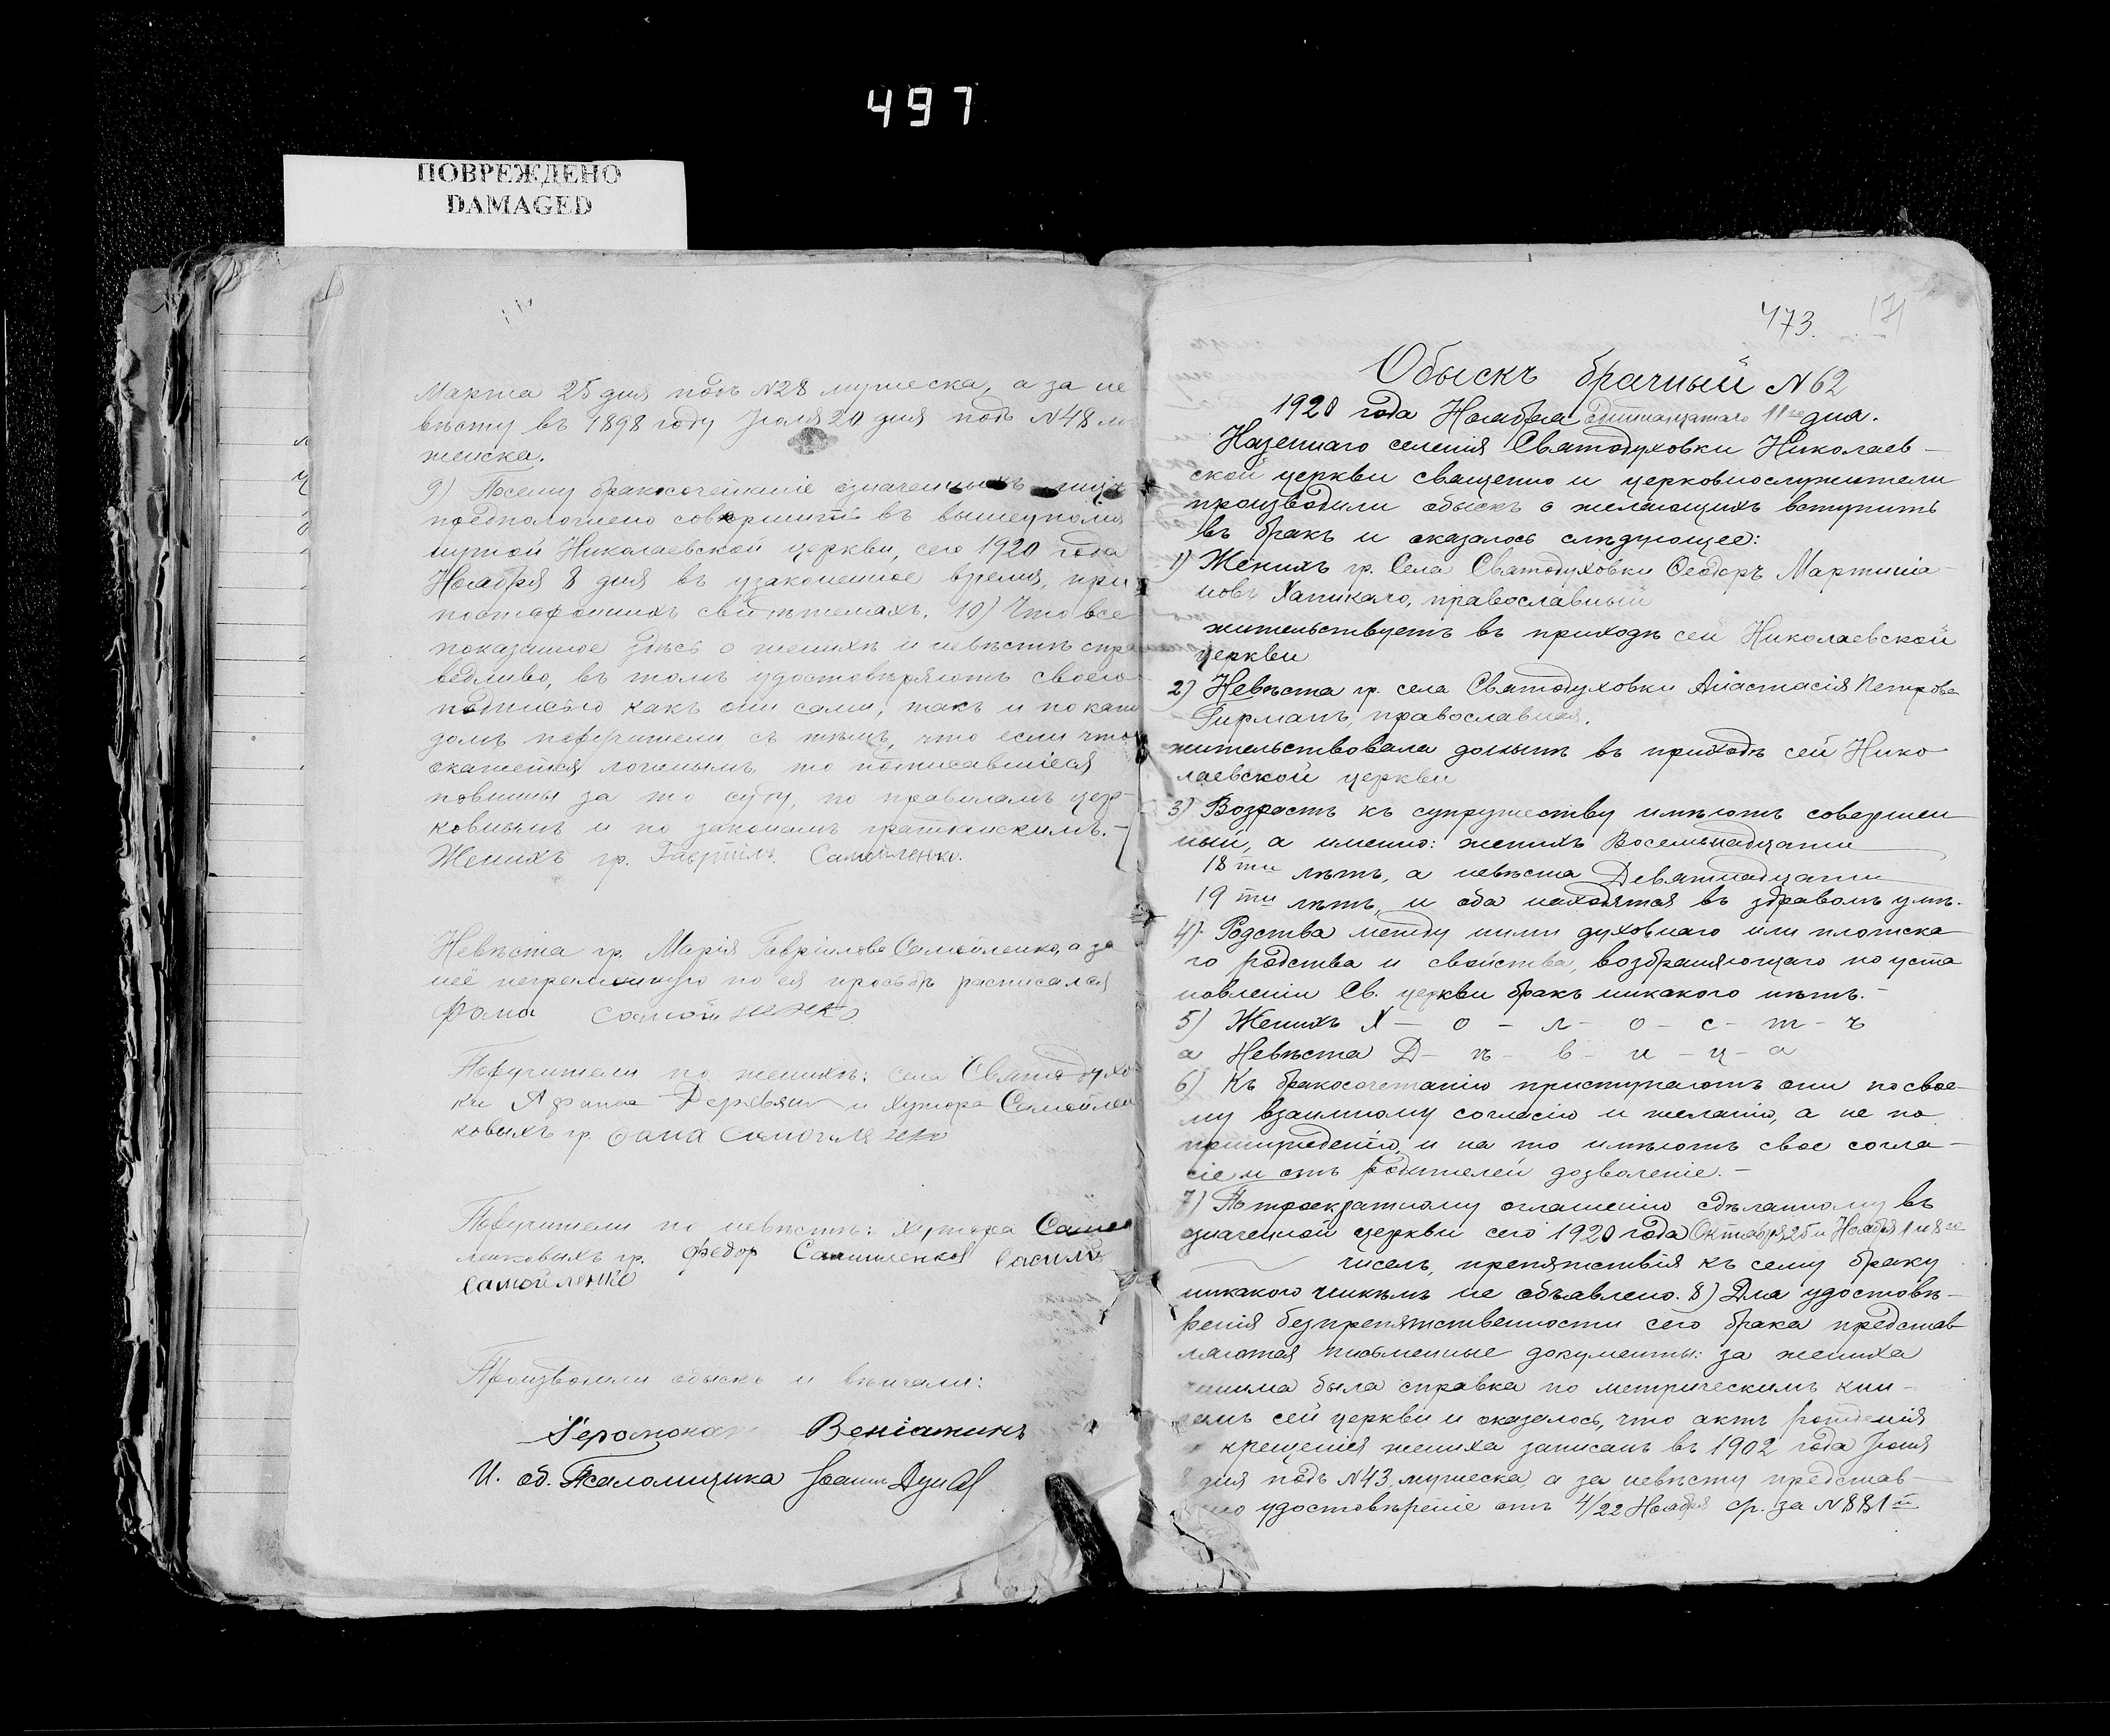 497
ПОВРЕЖДЕНО
DAMAGED
Марта 25 дня подъ N28 мужеска, а за не
вѣсту въ 1898 году Іюля 20 дня подъ N48
женска.
9) Посему бракосочетаніе означенныхъ лицъ
предположено совершить въ вышеупомя
нутой Николаевской церкви, сего 1920 года
Ноября 8 дня въ узаконенное время, при
постороннихъ свидѣтеляхъ. 10) Что все
показанное здѣсь о женихѣ и невѣстѣ спра
ведливо, въ томъ удостовѣряютъ своею
подписью какъ они сами, такъ и по каж
домъ поручители съ тѣмъ, что если что
окажется ложнымъ, то подписавшіеся
повинны за то суду, по правиламъ цер-
ковнымъ и по законамъ гражданскимъ.-
Женихъ гр. Гавріилъ Самойленко.
Невѣста гр. Марія Гаврілова Самойленко, а за
неё неграмотную по ея просьбѣ расписался
фома самойленко
Поручители по женихѣ: села Святодухо
ки Афанас Деревян и Хутора Самойлен
ковыхъ гр. фама самойленко
Поручители по невѣстѣ: Хутора Самой
ленковыхъ гр. федор Самойленко Василь
самойленко
Производили обыскъ и вѣнчали:
Іеромонах Веніаминъ
И. об. Псаломщика Іоаннъ
473.
Обыскъ брачный N62
1920 года Ноября одинадцатаго 11го дня.
Казеннаго селенія Святодуховки Николаев-
ской церкви священно и церковнослужители
производили обыскъ о желающихъ вступить
въ бракъ и оказалось слѣдующее:
1) Женихъ гр. Села Святодуховки Ѳеодоръ Мартиніа
новъ Хапикало, православный
жительствуетъ въ приходѣ сей Николаевской
церкви
2) Невѣста гр. села Святодуховки Анастасія Петрова
Гирманъ, православная.
жительствовала донынѣ въ приходѣ сей Нико
лаевской церкви
3) Возрастъ къ супружеству имѣютъ совершен
ный, а именно: женихъ Восемьнадцати
18ти лѣтъ, а невѣста Девятнадцати
19ти лѣтъ, и оба находятся въ здравомъ умѣ.
4) Родства между ними духовнаго или плотска
го родства и свойства, возбраняющаго по уста
новленію Св. церкви бракъ никакого нѣтъ.-
5) Женихъ Х - о - л - о - с - т - ъ
а Невѣста Д - ѣ - в - и - ц - а
6) Къ бракосочетанію приступаютъ они по свое-
му взаимному согласію и желанію, а не по
принужденію, и на то имѣютъ свое согла-
сіе и отъ родителей дозволеніе.-
7) По троекратному оглашенію сдѣланному въ
означенной церкви сего 1920 года Октября 25 и Ноября 1 и 8го
чиселъ, препятствія къ сему браку
никакого никѣмъ не объявлено. 8) Для удостовѣ-
ренія безпрепятственности сего брака представ
ляются письменные документы: за жениха
чинима была справка по метрическимъ кни-
гамъ сей церкви и оказалось, что актъ рожденія
крещенія жениха записанъ въ 1902 года Іюня
8 дня подъ N43 мужеска, а за невѣсту представ-
лено удостовѣреніе отъ 4/22 Ноября ср. за N881й